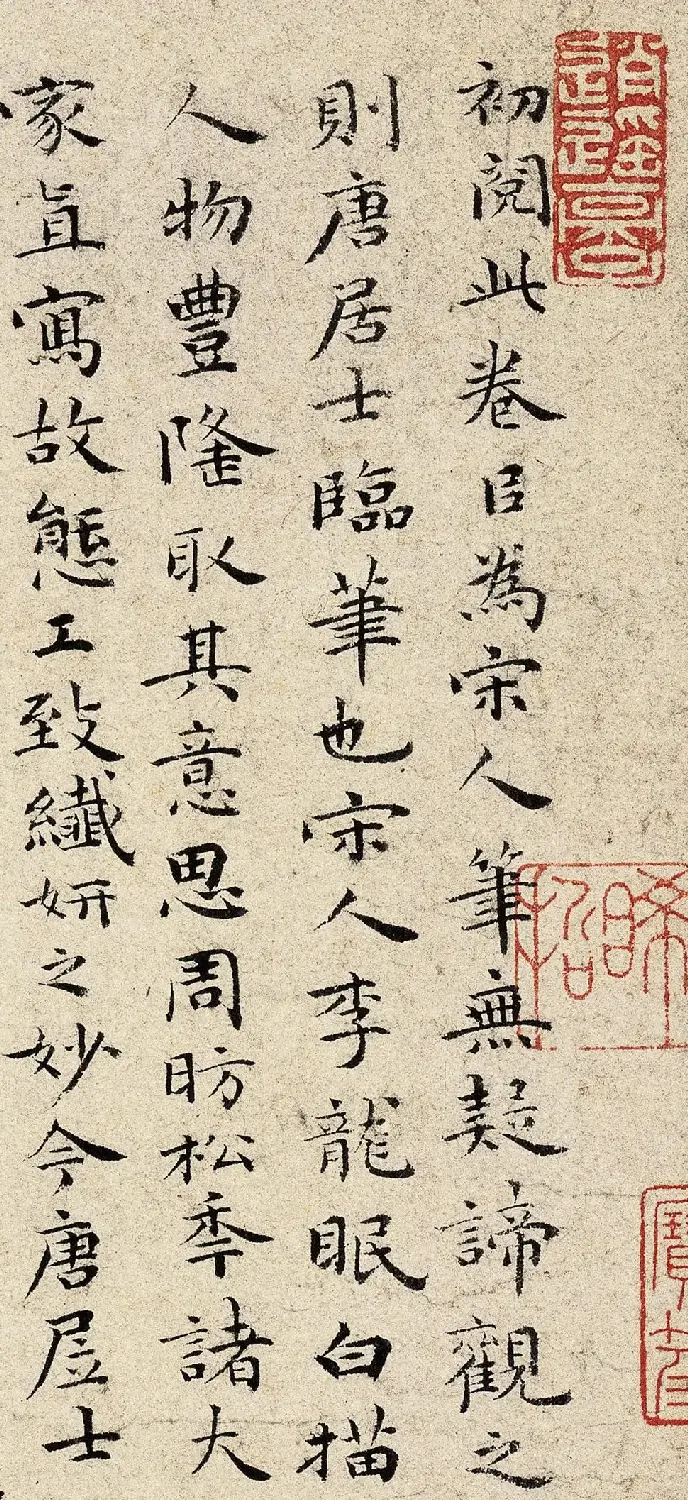 初閱此卷㠯為宋人筆無疑諦觀之
則唐居士臨筆也宋人李龍眠白描
人物豐隆取其意思周昉松年諸大
家直寫故態工致纖妍之妙今唐居士